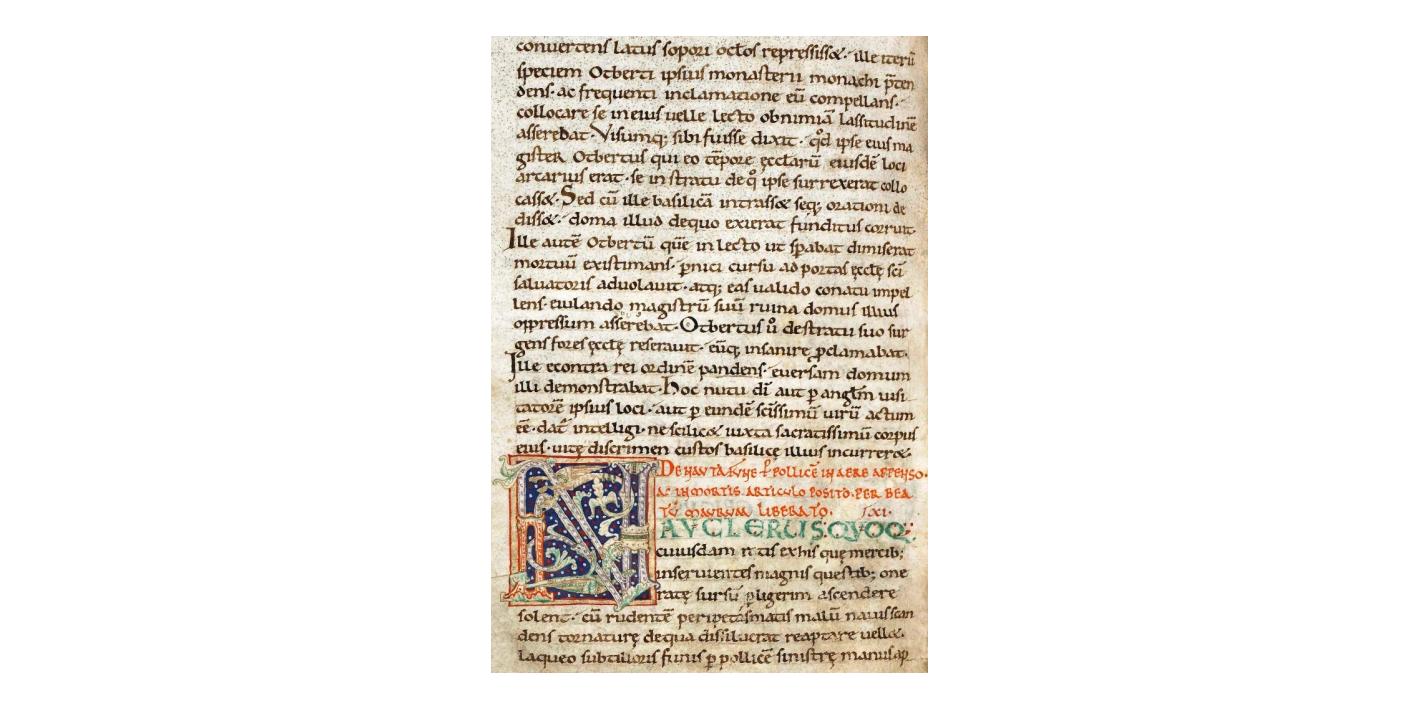 conuertens latus sopori oc̄tos repressiss&. ille iterū
speciem Otberti ipsius monasterii monachi p̄ten
dens. ac frequenti inclamatione eū compellans.
collocare se in eius uelle lecto ob nimiā lassitudinē
asserebat. Visumq; sibi fuisse dixit. qd̄ ipse eius ma
gister Otbertus qui eo tēpore ęcclarū eiusdē loci
artarius erat. se in stratu de qͦ ipse surrexerat collo
cass&. Sed cū ille basilicā intrass& seq; orationi de
diss&. doma illud de quo exierat funditus corruit.
Ille autē Otbertū quē in lecto ut sꝑabat dimiserat
mortuū existimans. p̄nici cursu ad portas ęcclę sc̄i
saluatoris aduolauit. atq; eas ualido conatu impel
lens. eiulando magistrū suū ruina domus illius
oppressum asserebat. Otbertus ū de stratu suo sur
gens fores ęcclę reserauit. eūq; insanire ꝓclamabat.
Ille econtra rei ordinē pandens. euersam domum
illi demonstrabat. hoc nutu dī aut ꝑ anglm̄ uisi
tatorē ipsius loci. aut ꝑ eundē sc̄issimū uirū actum
eē. dat̄ intelligi. ne scilic& iuxta sacratissimū corpus
eius. uitę discrimen custos basilicę illius incurrer&.
DE NAUTA FUNE Ꝑ POLLICĒ IN AERE APPENSO.
AC IN MORTIS ARTICULO POSITO. PER BEA
TŪ MAURUM LIBERATO. IXI.
NAUCLERUS QUOQ;
cuiusdam nauis ex his quę mercib;
inseruientes magnis questib; one
ratę sursū ꝑ ligerim ascendere
solent. cū rudentē peripetasmatis malū nauis scan
dens tornaturę de qua dissiluerat reaptare uell&.
laqueo subtilioris funis ꝑ pollicē sinistrę manus ap